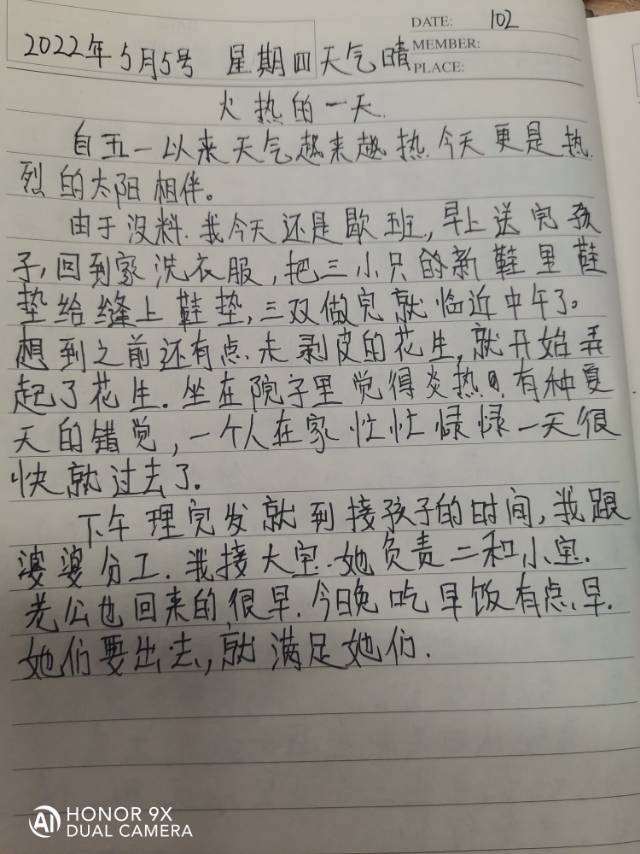 DATE: 102
MEMBER:
PLACE:
2022年5月5号 星期四天气晴
火热的一天.
自五一以来天气越来越热.今天更是热
烈的太阳相伴。
由于没料.我今天还是歇班,早上送完孩
子,回到家洗衣服,把三小只的新鞋里鞋
垫给缝上鞋垫,三双做完就临近中午了。
想到之前还有点未剥皮的花生,就开始弄
起了花生.坐在院子里觉得炎热,有种夏
天的错觉,一个人在家忙忙碌碌一天很
快就过去了.
下午理完发就到接孩子的时间,我跟
婆婆分工.我接大宝.她负责二和小宝.
老公也回来的很早.今晚吃早饭有点早.
她们要出去,就满足她们.
AI HONOR 9X
DUAL CAMERA